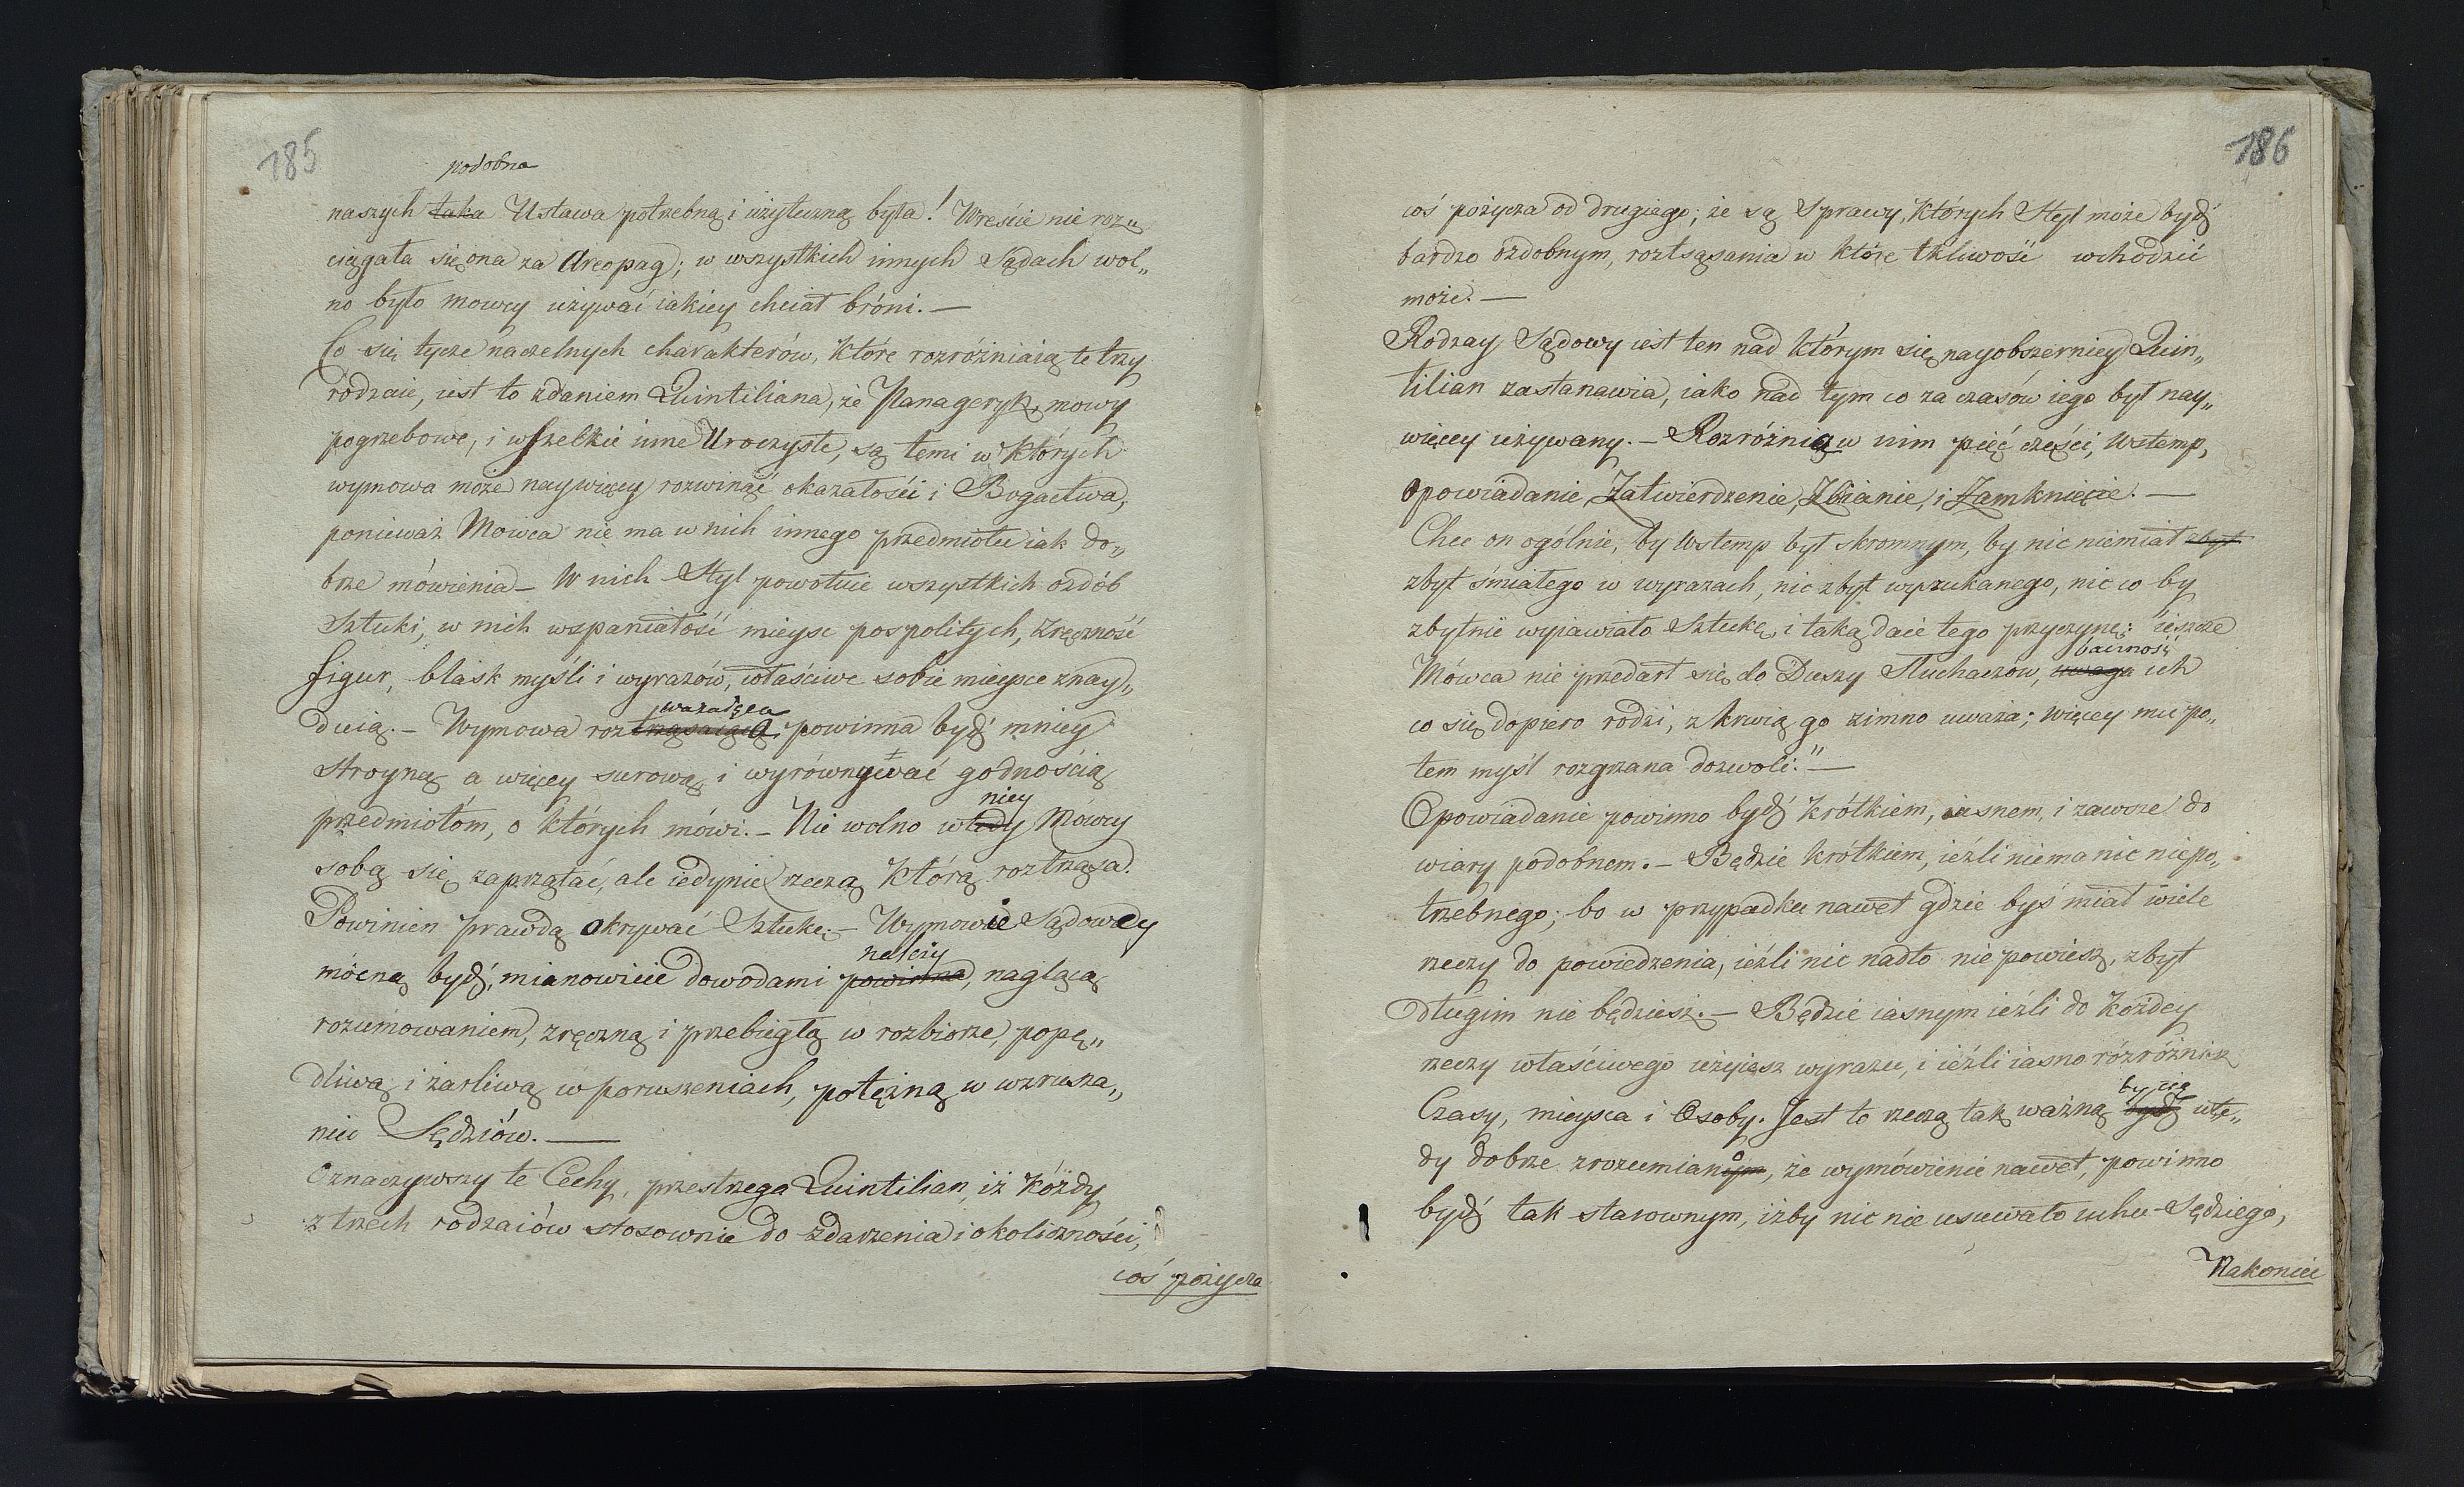 185
podobna
naszych taka Ustawa potrzebną i użyteczną była! Wreście nie roz„
ciągała się ona za Areopag; w wszystkich innych Sądach wol„
no było mowcy używać iakiey chciał bróni. —
Co się tycze naczelnych charakterów, które rozróżniaią te trzy
rodzaie, iest to zdaniem Quintiliana, że Panageryk, mowy
pogrzebowe, i wszelkie inne Uroczyste, są temi w których
wymowa może naywięcey rozwinąć okazałości i Bogactwa,
ponieważ Mowca nie ma w nich innego przedmiotu iak do„
brze mówienia — W nich Styl powołuie wszystkich ozdób
Sztuki, w nich wspaniałość mieysc pospolitych, Zręczność
figur, blask myśli i wyrazów, właściwe sobie mieysce znay„
duią. — Wymowa roztrząsaiąca powinna bydź mniey
ważaiąca
stroyną a więcey surową i wyrównywać godnością
przedmiotóm, o których mówi. — Nie wolno wtedy Mówcy
niey
sobą się zaprzątać, ale iedynie rzeczą którą roztrząsa.
Powinien prawdą okrywać Sztukę. — Wymowie Sądowey
mócną bydź, mianowicie dowodami powinna, naglącą
należy
rozumowaniem, zręczną i przebiegłą w rozbiorze, popę„
dliwą i żarliwą w poruszeniach, potężną w wzrusza„
niu Sędziów. —
Oznaczywszy te Cechy, przestrzega Quintilian, iż Kóżdy
z trzech rodzaiów stosownie do zdarzenia i okoliczności,
coś pożycza
186
coś pożycza od drugiego; że są Sprawy, których Styl może bydź
bardzo ozdobnym, roztsąsania w które tkliwość wchodzić
może. —
Rodzay Sądowy iest ten nad którym się nayobszerniey Quin„
tilian zastanawia, iako nad tym co za czasów iego był nay„
więcey używany. — Rozróżnia w nim pięć części, Wstemp,
opowiadanie, Zatwierdzenie, Zbianie, i Zamknięcie. —
Chce on ogólnie, by Wstemp był skromnym, by nic niemiał zbyt
zbyt śmiałego w wyrazach, nic zbyt wyszukanego, nic co by
zbytnie wyiawiało Sztukę, i taką daie tego przyczynę: ieszcze
Mówca nie przedarł się do Duszy Słuchaczów, uwaga ich
baczność
co się dopiero rodzi, z krwią go zimno uważa; więcey mu po„
tem myśl rozgrzana dozwoli." —
Opowiadanie powinno bydź krótkiem, iasnem, i zawsze do
wiary podobnem. — Będzie krótkiem, ieźli niema nic niepo„
trzebnego; bo w przypadku nawet gdzie byś miał wiele
rzeczy do powiedzenia, ieźli nic nadto nie powiesz, zbyt
długim nie będziesz. — Będzie iasnym ieźli do Kożdey
rzeczy właściwego użyiesz wyrazu, i ieźli iasno rózróżnisz
Czasy, mieysca i Osoby. Jest to rzeczą tak ważną bydź wte„
by cię
dy dobrze zrozumianym, że wymówienie nawet, powinno
o
bydź tak starownym, iżby nic nie usuwało uchu Sędziego,
Nakoniec